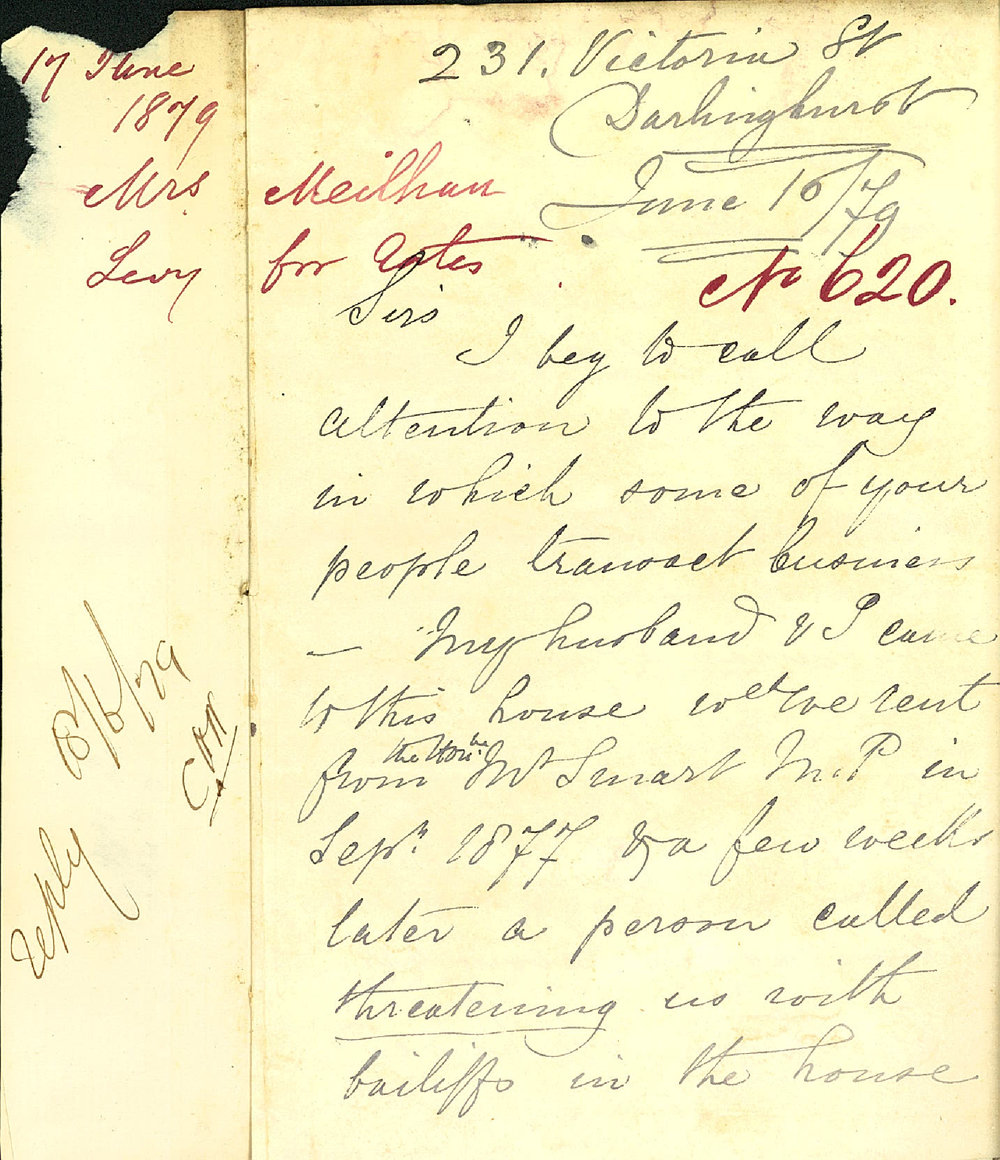 17 June
1879
Mrs Meilhan
Levy for Rates
231. Victoria St
Darlinghurst
June 16/79
No 620.
Sirs
I beg to call
attention to the way
in which some of your
people transact business
— My husband & I came
to this house wch we rent
from the Honble Mr Smart M.P in
Sepr. 1877 & a few weeks
later a person called
threatening us with
bailiffs in the house
reply 18/6/79